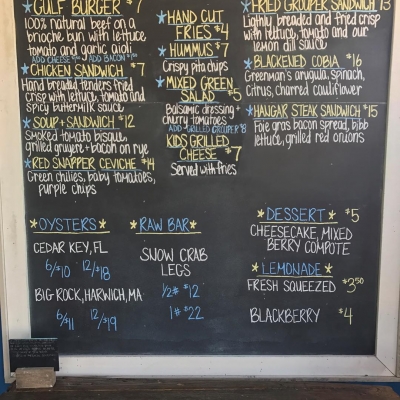 GULF BURGER $7
100% natural beef on a
brioche bun with lettuce
tomato and garlic aioli
CHICKEN SANDWICH $7
Hand breaded tenders fried
crisp with lettuce, tomato and
spicy buttermilk sauce
SOUP + SANDWICH $12
Smoked tomato bisque,
grilled gruyere + bacon on rye
RED SNAPPER CEVICHE $14
Green chilies, baby tomatoes,
purple chips
HAND CUT
FRIES $4
HUMMUS $7
Crispy pita chips
MIXED GREEN
SALAD $5
Balsamic dressing +
cherry tomatoes
ADD GRILLED GROUPER $8
KIDS GRILLED
CHEESE $7
Served with fries
FRIED GROUPER SANDWICH 13
Lightly breaded and fried crisp
with lettuce, tomato and our
lemon dill sauce
BLACKENED COBIA $16
Greenman's arugula, spinach,
citrus, charred cauliflower
HANGAR STEAK SANDWICH $15
Foie gras bacon spread, bibb
lettuce, grilled red onions
OYSTERS
CEDAR KEY, FL
6/$10 12/$18
BIG ROCK, HARWICH, MA
6/$11 12/$19
RAW BAR
SNOW CRAB
LEGS
1/2# $12
1# $22
DESSERT $5
CHEESECAKE, MIXED
BERRY COMPOTE
LEMONADE
FRESH SQUEEZED $3.50
BLACKBERRY $4